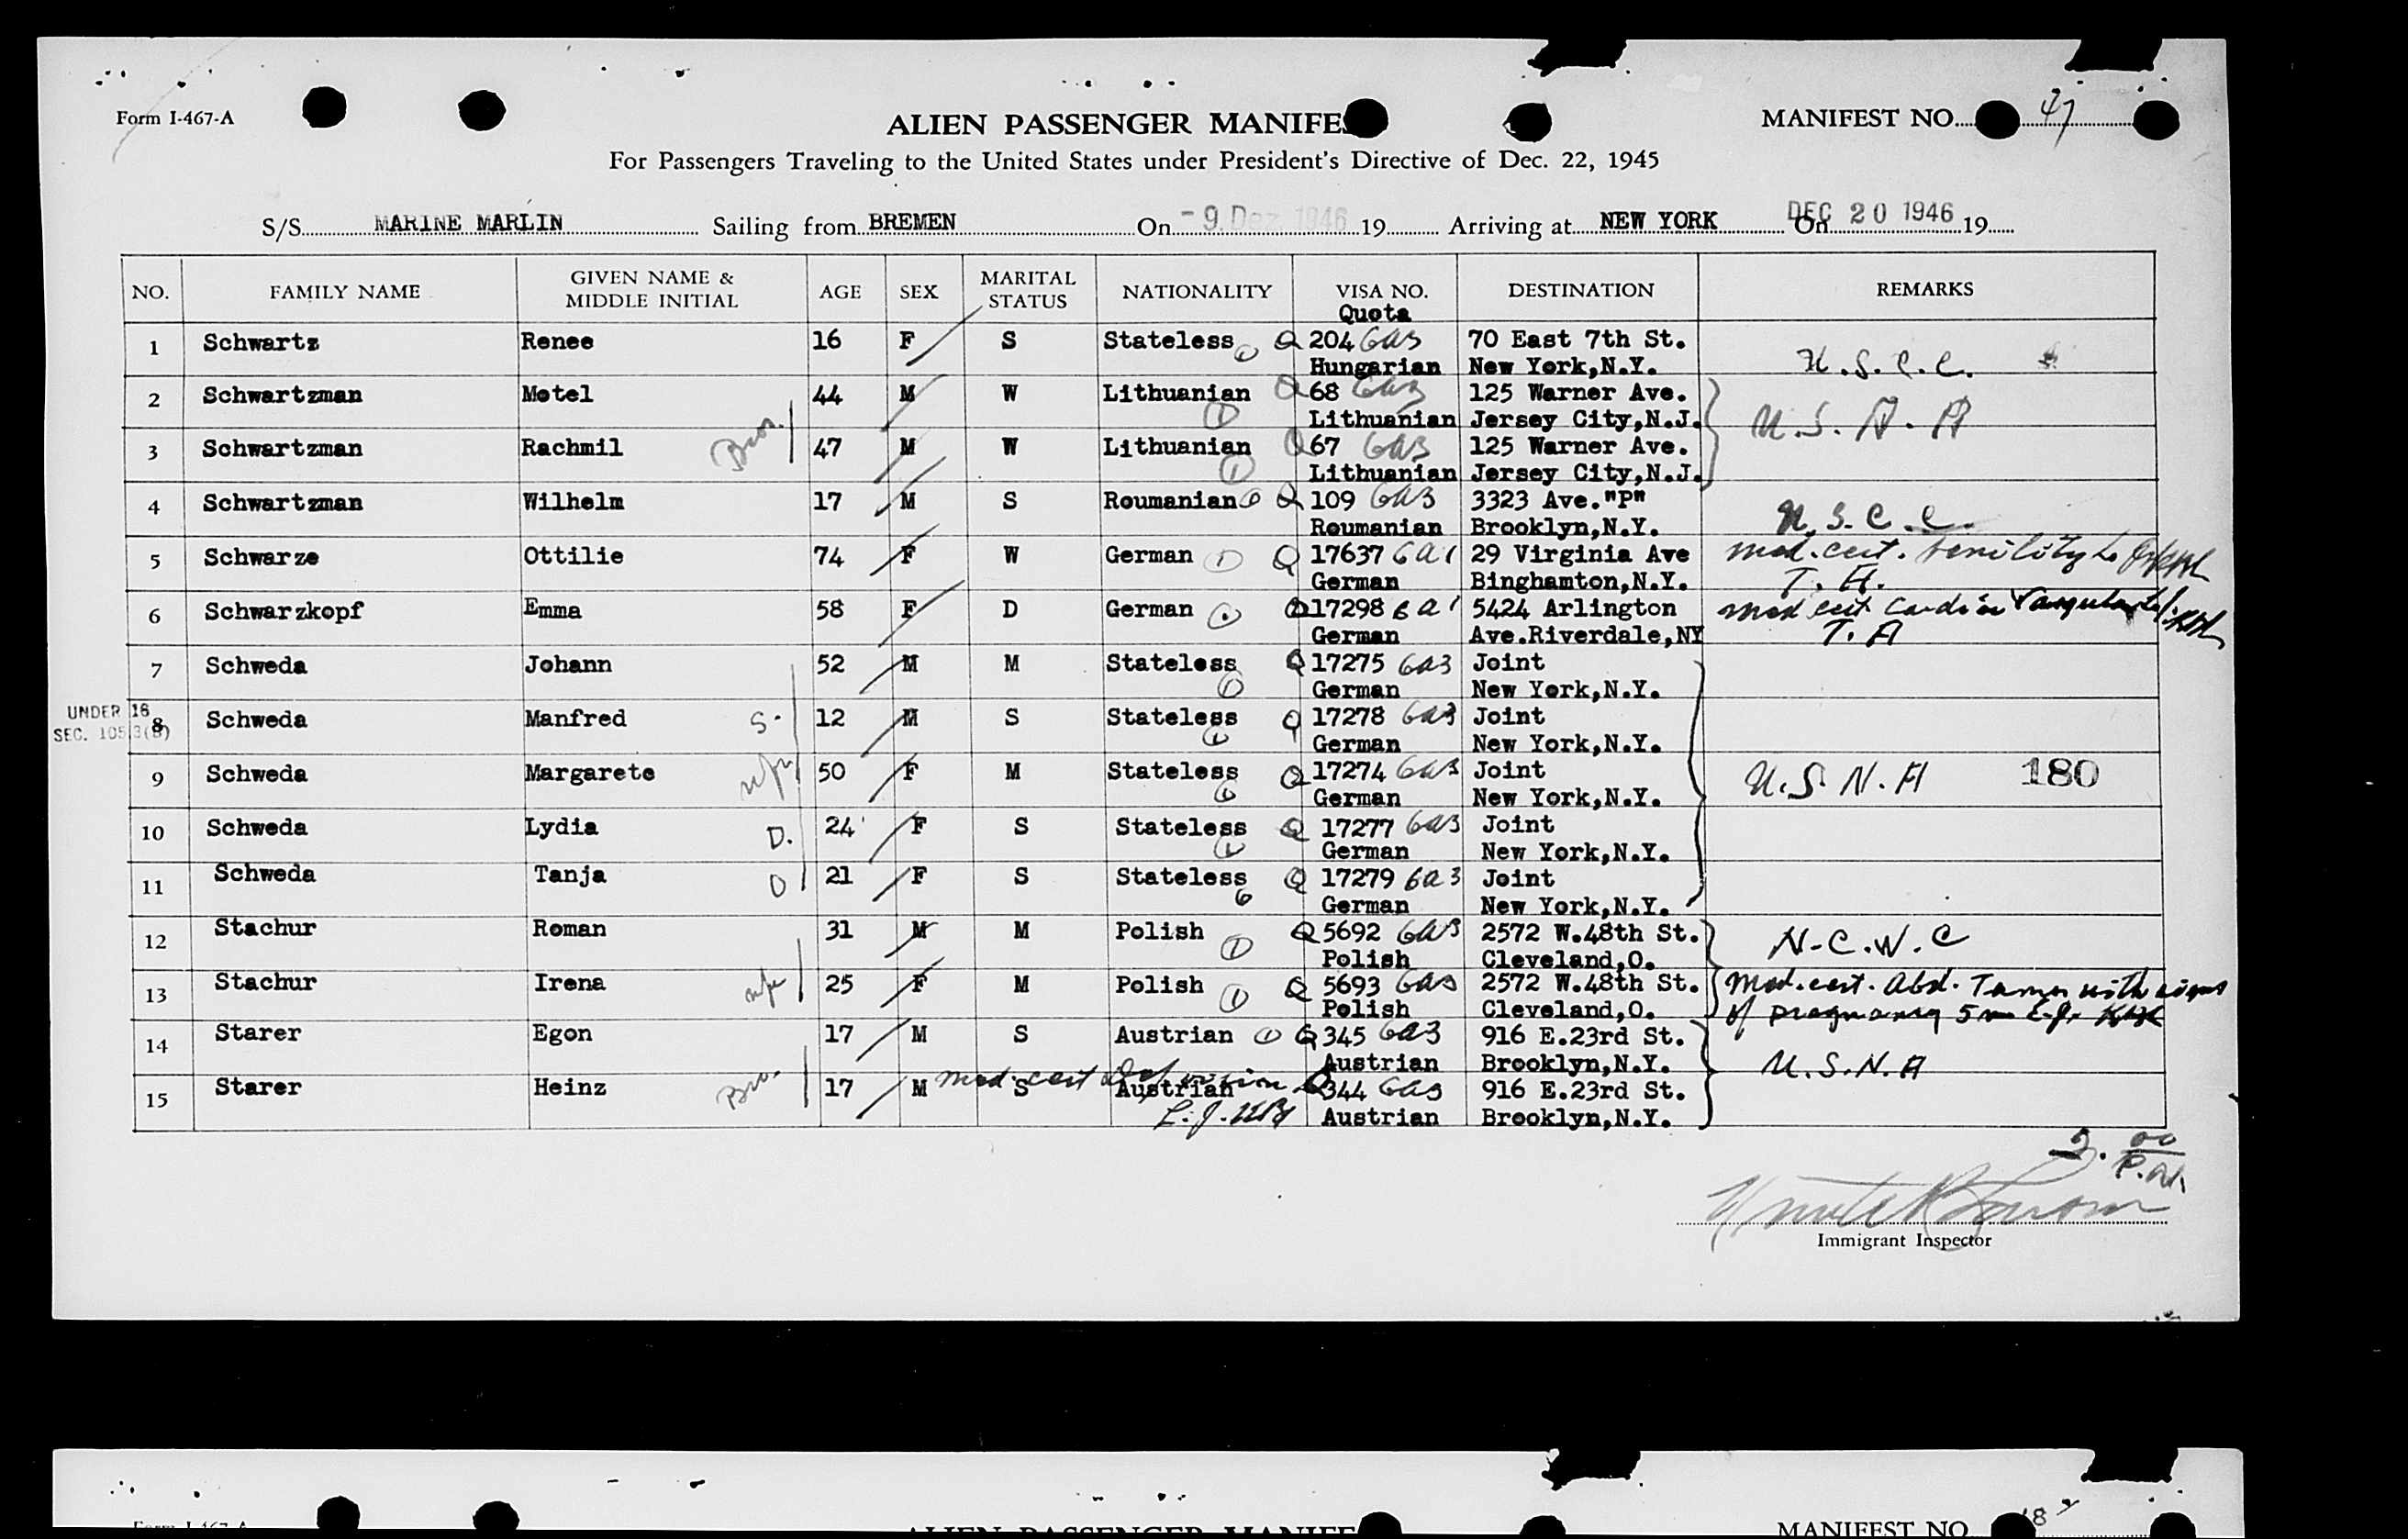 Form I-467-A
ALIEN PASSENGER MANIFES
MANIFEST NO. 47
For Passengers Traveling to the United States under President's Directive of Dec. 22, 1945
S/S MARINE MARLIN Sailing from BREMEN On - 9. Dez. 1946 19 Arriving at NEW YORK On DEC 20 1946 19
NO. FAMILY NAME GIVEN NAME & MIDDLE INITIAL AGE SEX MARITAL STATUS NATIONALITY VISA NO. DESTINATION REMARKS
Quota
1 Schwartz Renee 16 F S Stateless Q 204 6a3 70 East 7th St.
Hungarian New York,N.Y. U.S.C.C.
2 Schwartzman Motel 44 M W Lithuanian Q 68 6a3 125 Warner Ave.
Lithuanian Jersey City,N.J. U.S.N.A
3 Schwartzman Rachmil Bros. 47 M W Lithuanian Q 67 6a3 125 Warner Ave.
Lithuanian Jersey City,N.J.
4 Schwartzman Wilhelm 17 M S Roumanian Q 109 6a3 3323 Ave."P"
Roumanian Brooklyn,N.Y. U.S.C.C.
5 Schwarze Ottilie 74 F W German Q 17637 6a1 29 Virginia Ave med. cert. senility
German Binghamton,N.Y. T.A.
6 Schwarzkopf Emma 58 F D German Q 17298 6a1 5424 Arlington med cert Cardio Vascular
German Ave.Riverdale,NY T.A
7 Schweda Johann 52 M M Stateless Q 17275 6a3 Joint
German New York,N.Y.
UNDER 16
SEC. 105.3(B)
8 Schweda Manfred S. 12 M S Stateless Q 17278 6a3 Joint
German New York,N.Y.
9 Schweda Margarete 50 F M Stateless Q 17274 6a3 Joint U.S.N.A 180
German New York,N.Y.
10 Schweda Lydia D. 24 F S Stateless Q 17277 6a3 Joint
German New York,N.Y.
11 Schweda Tanja D 21 F S Stateless Q 17279 6a3 Joint
German New York,N.Y.
12 Stachur Roman 31 M M Polish Q 5692 6a3 2572 W.48th St. N.C.W.C
Polish Cleveland,O.
13 Stachur Irena 25 F M Polish Q 5693 6a3 2572 W.48th St. Med. cert. Abd. Tumor with signs
Polish Cleveland,O. of pregnancy 5
14 Starer Egon 17 M S Austrian Q 345 6a3 916 E.23rd St.
Austrian Brooklyn,N.Y. U.S.N.A
15 Starer Heinz Bro. 17 M S Austrian med. cert Def vision Q 344 6a3 916 E.23rd St.
Austrian Brooklyn,N.Y.
Immigrant Inspector
Form I-467-A
ALIEN PASSENGER MANIFE
MANIFEST NO.